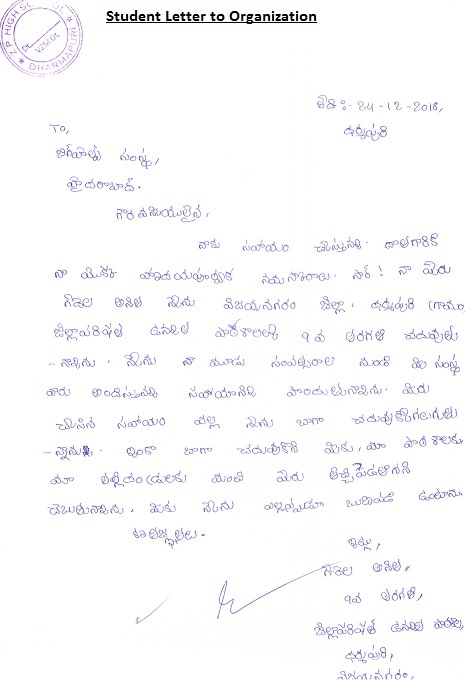 Student Letter to Organization
Z P HIGH SCHOOL
DHARMAPURI
VZM Dt.
తేది :- 24-12-2018,
ధర్మపురి
To,
బిగ్‌హెల్ప్ సంస్థ,
హైదరాబాద్.
గౌరవనీయులైన,
నాకు సహాయం చేస్తున్న దాతగారికి
నా యొక్క హృదయపూర్వక నమస్కారాలు. సార్! నా పేరు
అనిల నేను విజయనగరం జిల్లా, ధర్మపురి గ్రామం,
జిల్లాపరిషత్ ఉన్నత పాఠశాలలో 9వ తరగతి చదువుతు
-న్నాను. నేను నా మూడు సంవత్సరాల నుండి మీ సంస్థ
వారు అందిస్తున్న సహాయాన్ని పొందుతున్నాను. మీరు
చేసిన సహాయం వల్ల నేను బాగా చదువుకోగలుగుతు
-న్నాను. ఇంకా బాగా చదువుకొని మీకు, మా పాఠశాలకు
మా తల్లిదండ్రులకు మంచి పేరు తెచ్చిపెడతానని
చెబుతున్నాను. మీకు నేను ఎల్లప్పుడూ ఋణపడి ఉంటాను
కృతజ్ఞతలు.
ఇట్లు,
అనిల,
9వ తరగతి,
జిల్లాపరిషత్ ఉన్నత పాఠశాల,
ధర్మపురి,
విజయనగరం,